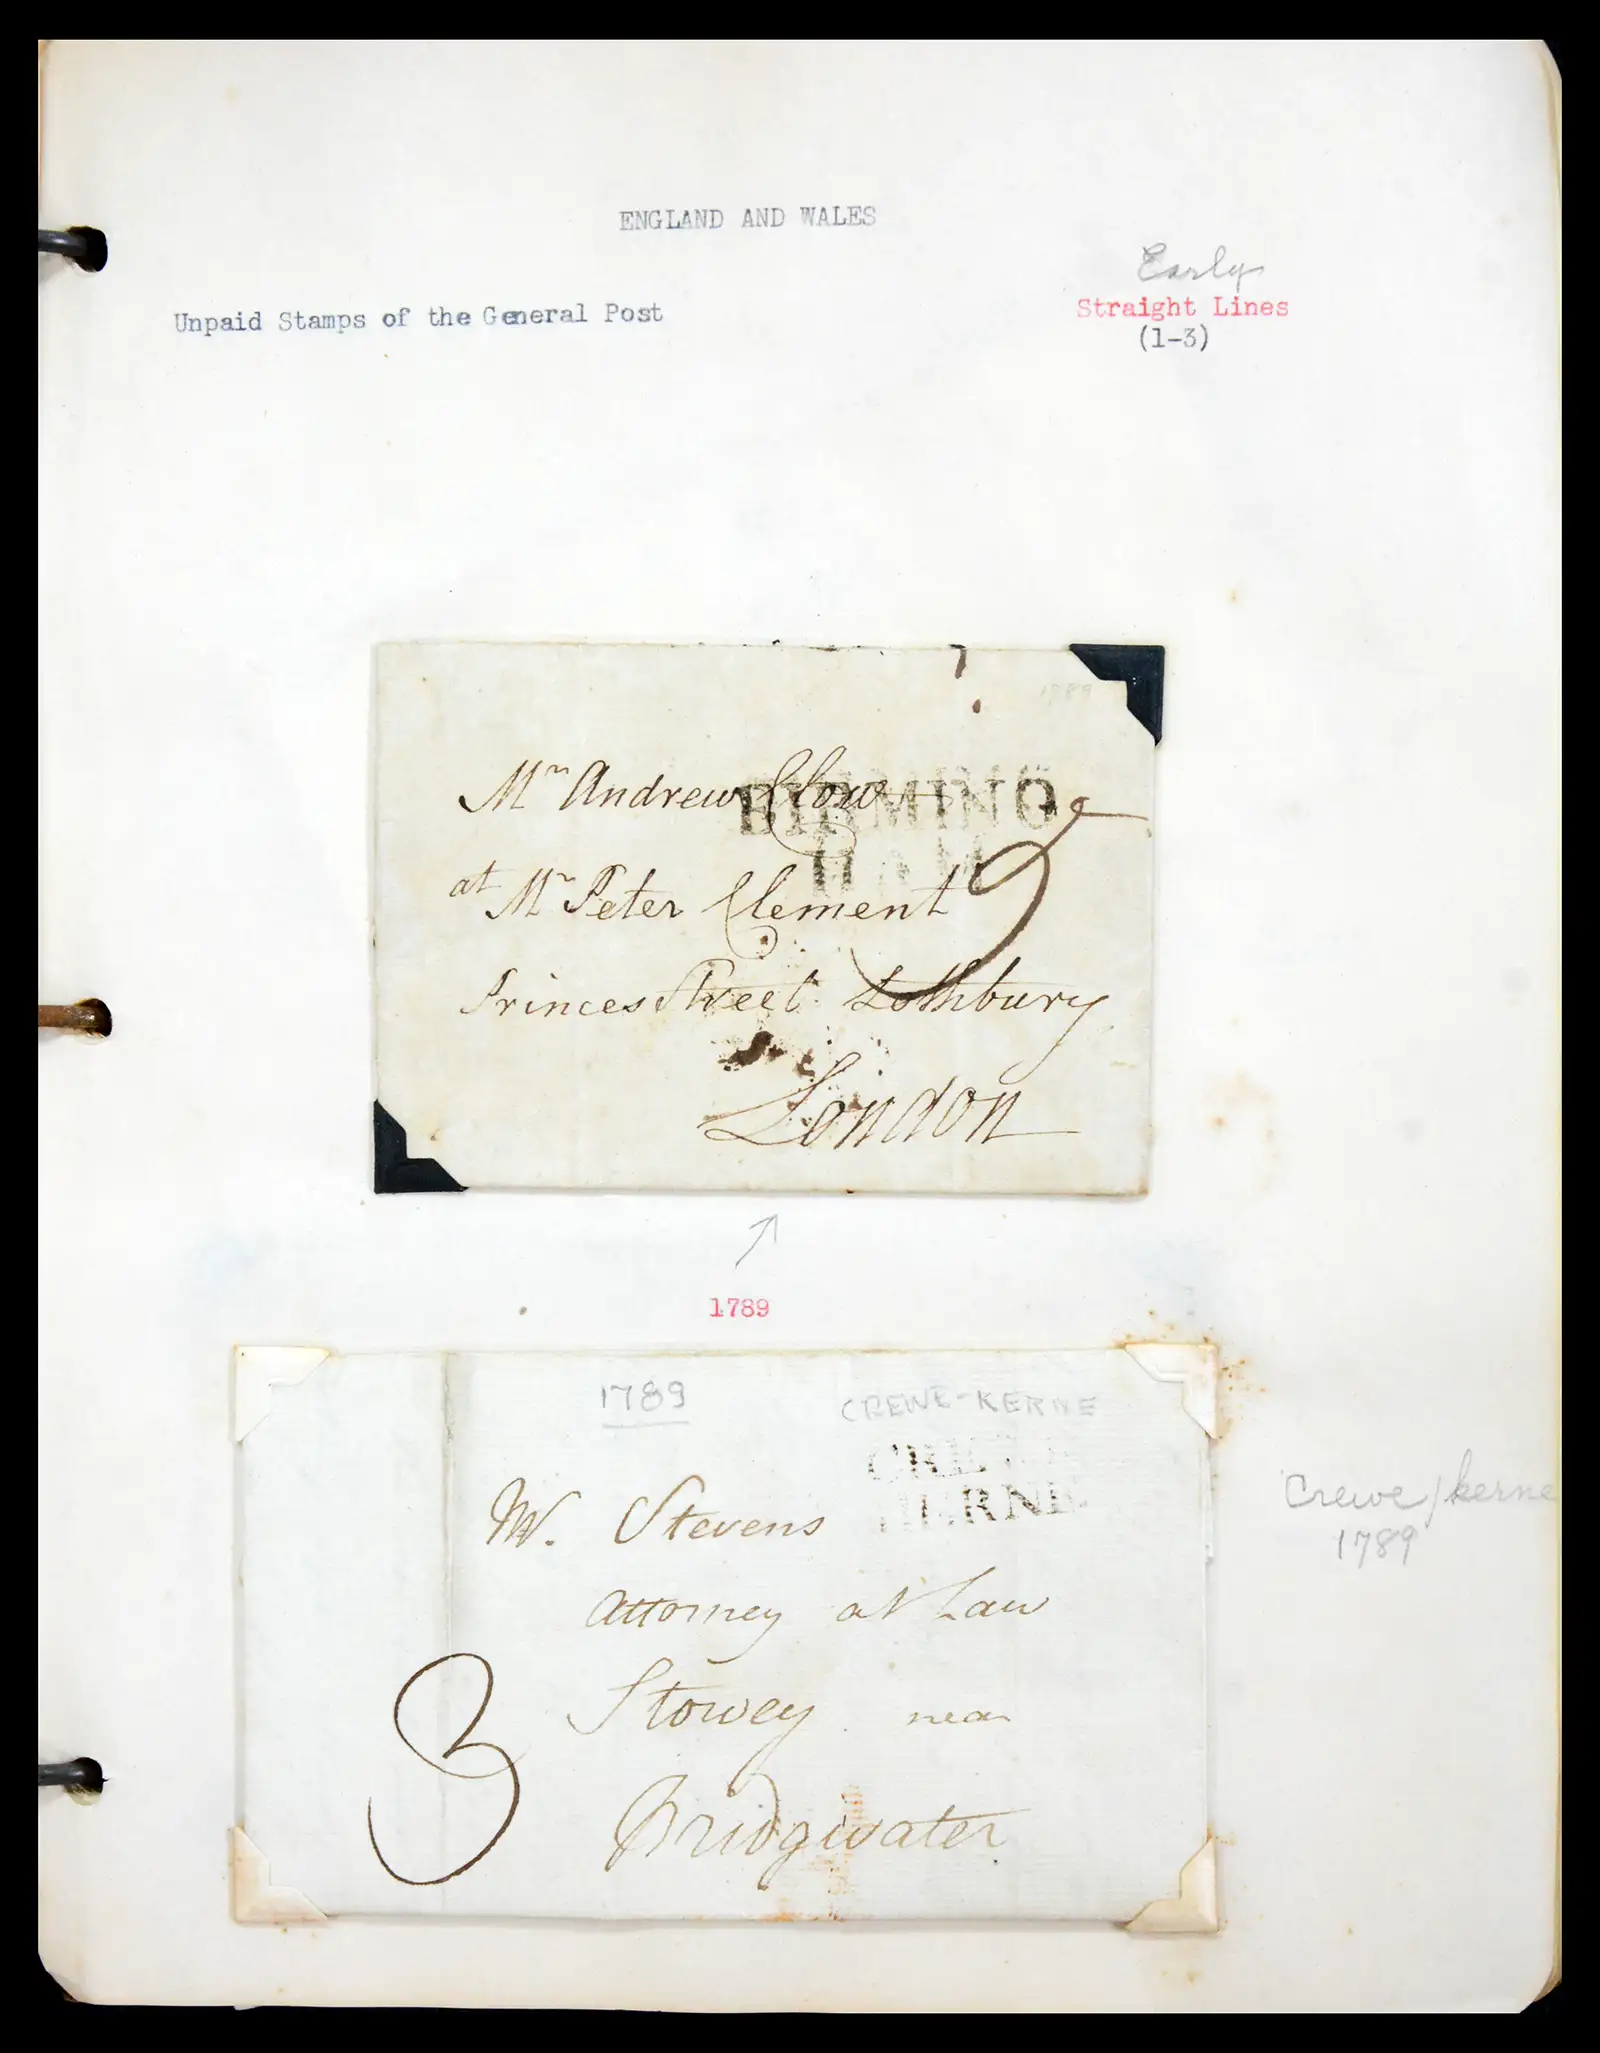 ENGLAND AND WALES
Early
Straight Lines
(1-3)
Unpaid Stamps of the General Post
1789
BIRMING
HAM
Mr Andrew Clow
at Mr Peter Clement
Princes Street Lothbury
London
1789
1789
CREWE-KERNE
CREWE
KERNE
Mr. Stevens
Attorney at Law
Stowey near
Bridgwater
3
Crewe/kerne
1789